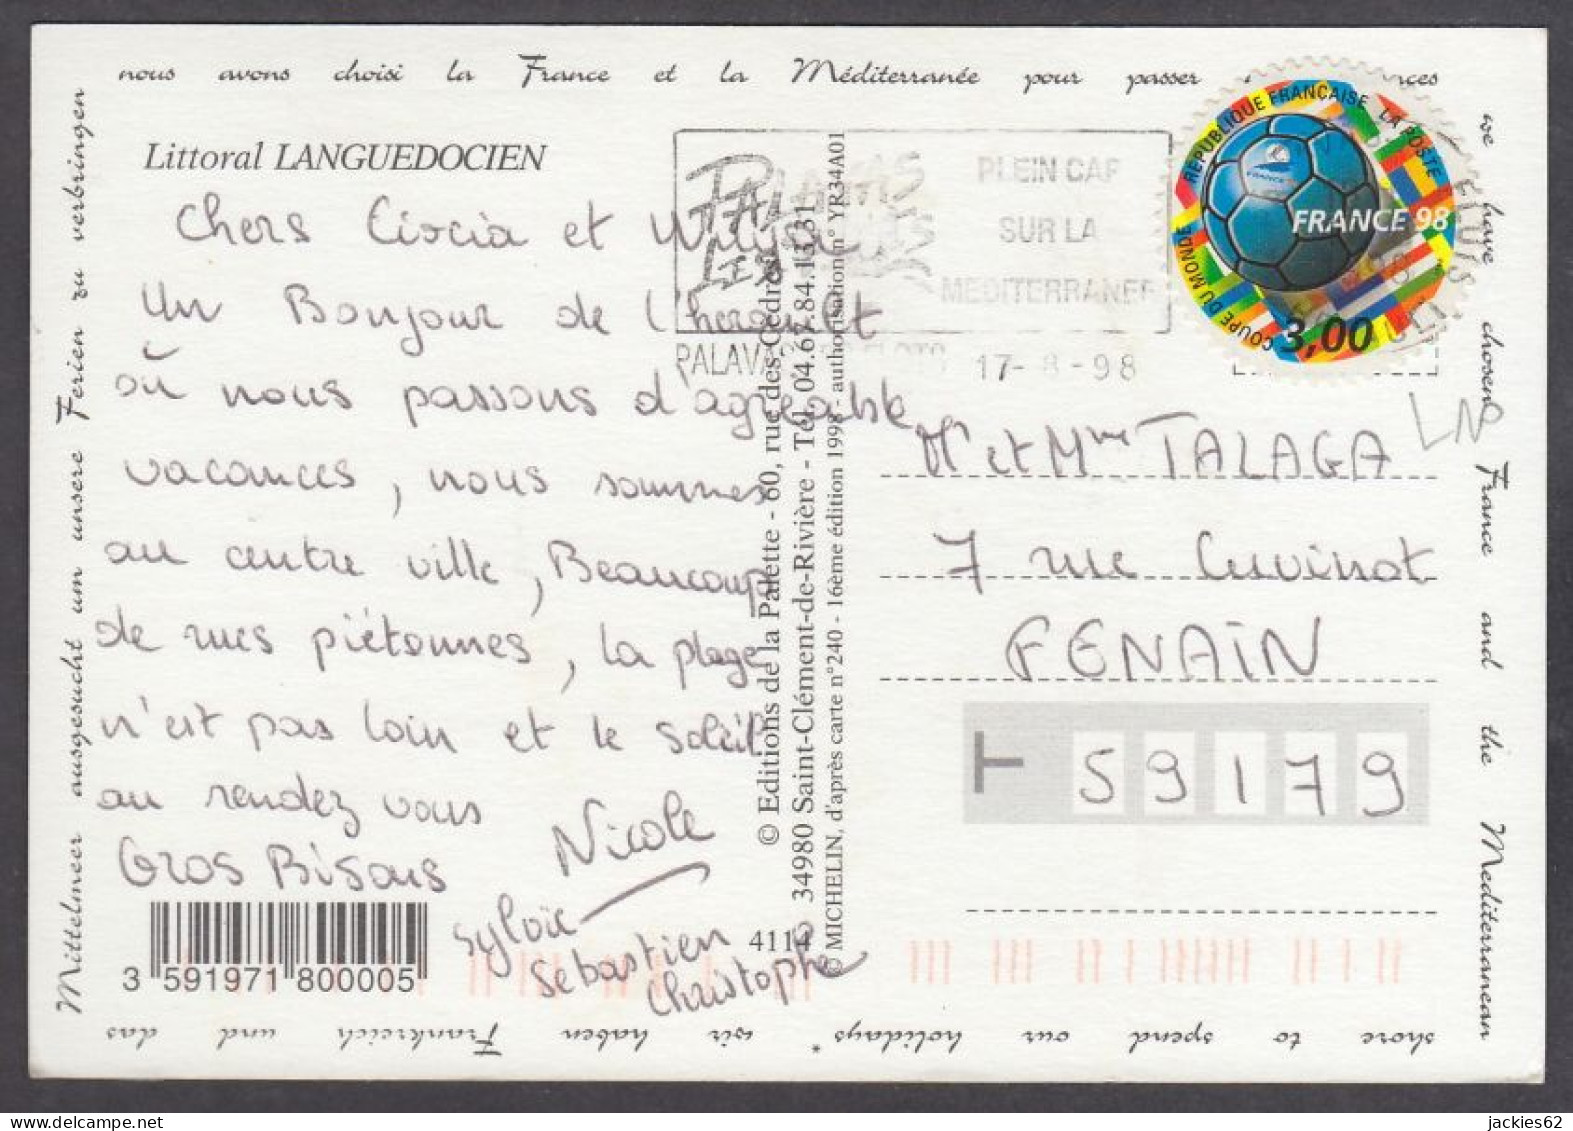 nous avons choisi la France et la Méditerranée pour passer
we have chosen France and the Mediterranean
shore to spend our holidays* wir haben Frankreich und das
Mittelmeer ausgesucht um unsere Ferien zu verbringen
Littoral LANGUEDOCIEN
Chers
et
Un Bonjour de l'herault
où nous passons d'agréable
vacances, nous sommes
au centre ville, Beaucoup
de rues piétonnes, la plage
n'est pas loin et le soleil
au rendez vous
Gros Bisous
Nicole
Sylvie
Sebastien
Christophe
3 591971 800005
4114
© Editions de la Palette - 60, rue des Cèdres
34980 Saint-Clément-de-Rivière - Tél. 04.67.84.13.31
© MICHELIN, d'après carte n°240 - 16ème édition 1998 - authorisation n° YR34A01
PLEIN CAP
SUR LA
MEDITERRANEE
17-8-98
REPUBLIQUE FRANÇAISE LA POSTE
FRANCE 98
COUPE DU MONDE
3,00
LNP
Mr et Mme TALAGA
7 rue Cuvinot
FENAIN
59179
jackies62